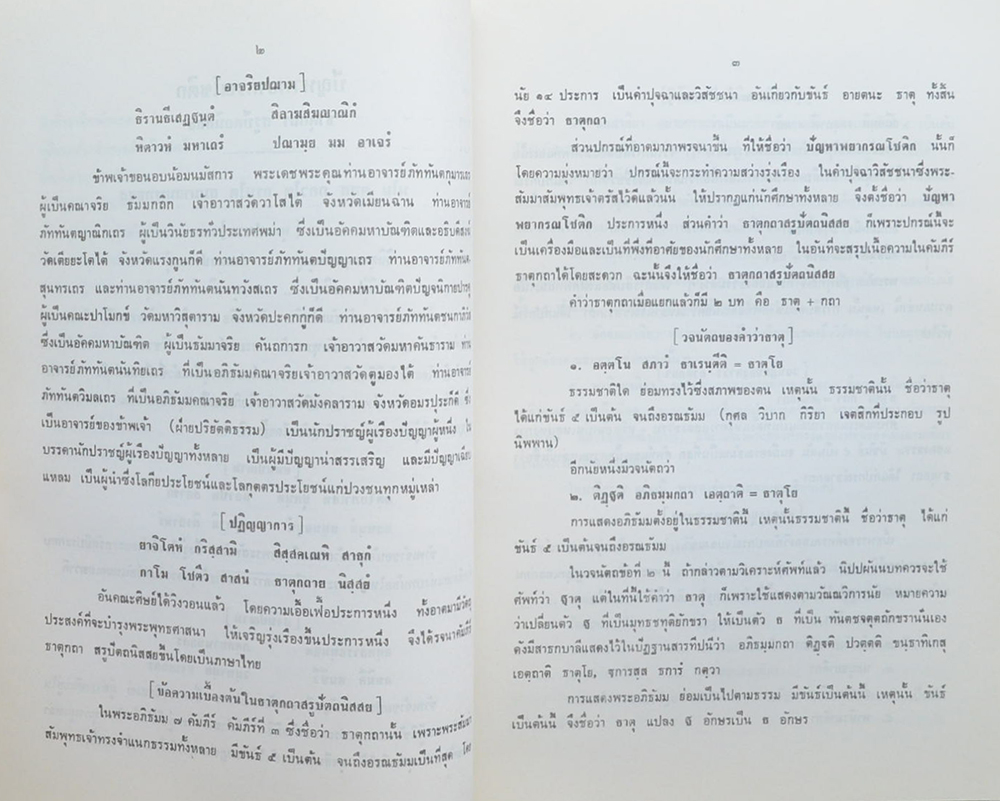 ๒
[ อาจริยปณาม ]
ธิรานธีเสฏฐนฺตํ สิลามสิฆณาณิกํ
หิตาวหํ มหาเถรํ ปณามฺย มม อาเจรํ
ข้าพเจ้าขอนอบน้อมนมัสการ พระเดชพระคุณท่านอาจารย์ภัททันตกุมารเถร
ผู้เป็นคณาจริย ธัมมกถิก เจ้าอาวาสวัดวาโสใต้ จังหวัดเมียนฉาน ท่านอาจารย์
ภัททันตญาณิกเถร ผู้เป็นวินัยธรทั่วประเทศพม่า ซึ่งเป็นอัคคมหาบัณฑิตและอธิบดีสงฆ์
วัดเตียยะโตใต้ จังหวัดแรงกูนก็ดี ท่านอาจารย์ภัททันตปัญญาเถร ท่านอาจารย์ภัททันต
สุนทรเถร และท่านอาจารย์ภัททันตนันทวังสเถร ซึ่งเป็นอัคคมหาบัณฑิตปัญจนิกายปาระคู
ผู้เป็นคณะปาโมกข์ วัดมหาวิสุตาราม จังหวัดปะคกกู่ก็ดี ท่านอาจารย์ภัททันตชนกาภิวังส
ซึ่งเป็นอัคคมหาบัณฑิต ผู้เป็นธัมมาจริย คันถการก เจ้าอาวาสวัดมหาคันธาราม ท่าน
อาจารย์ภัททันตนันทิยเถร ที่เป็นอภิธัมมคณาจริยเจ้าอาวาสวัดตูมองใต้ ท่านอาจารย์
ภัททันตวิมลเถร ที่เป็นอภิธัมมคณาจริย เจ้าอาวาสวัดมังคลาราม จังหวัดอมรปุระก็ดี ซึ่ง
เป็นอาจารย์ของข้าพเจ้า (ฝ่ายปริยัตติธรรม) เป็นนักปราชญ์ผู้เรืองปัญญาผู้หนึ่ง ใน
บรรดานักปราชญ์ผู้เรืองปัญญาทั้งหลาย เป็นผู้มีปัญญาน่าสรรเสริญ และมีปัญญาเฉียบ
แหลม เป็นผู้นำซึ่งโลกียประโยชน์และโลกุตตรประโยชน์แก่ปวงชนทุกหมู่เหล่า
[ ปฏิญญาการ ]
ยาจิโตหํ กริสฺสามิ สิสฺสคเณหิ สาธุกํ
กาโม โชตึว สาสนํ ธาตุกถาย นิสฺสยํ
อันคณะศิษย์ได้วิงวอนแล้ว โดยความเอื้อเฟื้อประการหนึ่ง ทั้งอาตมามีวัตถุ
ประสงค์ที่จะบำรุงพระพุทธศาสนา ให้เจริญรุ่งเรืองขึ้นประการหนึ่ง จึงได้รจนาคัมภีร์
ธาตุกถา สรูปัตถนิสสยขึ้นโดยเป็นภาษาไทย
[ ข้อความเบื้องต้นในธาตุกถาสรูปัตถนิสสย ]
ในพระอภิธัมม ๗ คัมภีร์ คัมภีร์ที่ ๓ ซึ่งชื่อว่า ธาตุกถานั้น เพราะพระสัมมา
สัมพุทธเจ้าทรงจำแนกธรรมทั้งหลาย มีขันธ์ ๕ เป็นต้น จนถึงอรณธัมมเป็นที่สุด โดย
๓
นัย ๑๔ ประการ เป็นคำปุจฉาและวิสัชชนา อันเกี่ยวกับขันธ์ อายตนะ ธาตุ ทั้งสิ้น
จึงชื่อว่า ธาตุกถา
ส่วนปกรณ์ที่อาตมาภาพรจนาขึ้น ที่ให้ชื่อว่า ปัญหาพยากรณโชติก นั้นก็
โดยความมุ่งหมายว่า ปกรณ์นี้จะกระทำความสว่างรุ่งเรือง ในคำปุจฉาวิสัชนาซึ่งพระ-
สัมมาสัมพุทธเจ้าตรัสไว้ดีแล้วนั้น ให้ปรากฏแก่นักศึกษาทั้งหลาย จึงตั้งชื่อว่า ปัญหา
พยากรณโชติก ประการหนึ่ง ส่วนคำว่า ธาตุกถาสรูปัตถนิสสย ก็เพราะปกรณ์นี้จะ
เป็นเครื่องมือและเป็นที่พึ่งที่อาศัยของนักศึกษาทั้งหลาย ในอันที่จะสรุปเนื้อความในคัมภีร์
ธาตุกถาได้โดยสะดวก ฉะนั้นจึงให้ชื่อว่า ธาตุกถาสรูปัตถนิสสย
คำว่าธาตุกถาเมื่อแยกแล้วก็มี ๒ บท คือ ธาตุ + กถา
[ วจนัตถของคำว่าธาตุ ]
๑. อตฺตโน สภาวํ ธาเรนฺตีติ = ธาตุโย
ธรรมชาติใด ย่อมทรงไว้ซึ่งสภาพของตน เหตุนั้น ธรรมชาตินั้น ชื่อว่าธาตุ
ได้แก่ขันธ์ ๕ เป็นต้น จนถึงอรณธัมม (กุศล วิบาก กิริยา เจตสิกที่ประกอบ รูป
นิพพาน)
อีกนัยหนึ่งมีวจนัตถว่า
๒. ติฏฺฐติ อภิธมฺมกถา เอตฺถาติ = ธาตุโย
การแสดงอภิธัมมตั้งอยู่ในธรรมชาตินี้ เหตุนั้นธรรมชาตินี้ ชื่อว่าธาตุ ได้แก่
ขันธ์ ๕ เป็นต้นจนถึงอรณธัมม
ในวจนัตถข้อที่ ๒ นี้ ถ้ากล่าวตามวิเคราะห์ศัพท์แล้ว นิปปผันนบทควรจะใช้
ศัพท์ว่า ฐาตุ แต่ในที่นี้ใช้คำว่า ธาตุ ก็เพราะใช้แสดงตามวัณณวิการนัย หมายความ
ว่าเปลี่ยนตัว ฐ ที่เป็นมุทธชทุติยักขรา ให้เป็นตัว ธ ที่เป็น ทันตชจตุตถักขรานั่นเอง
ดังมีสาธกบาลีแสดงไว้ในปัฏฐานสารทีปนีว่า อภิธมฺมกถา ติฏฺฐติ ปวตฺตติ ขนฺธาทิเกสุ
เอตฺถาติ ธาตุโย, ฐการสฺส ธการํ กตฺวา
การแสดงพระอภิธัมม ย่อมเป็นไปตามธรรม มีขันธ์เป็นต้นนี้ เหตุนั้น ขันธ์
เป็นต้นนี้ จึงชื่อว่า ธาตุ แปลง ฐ อักษรเป็น ธ อักษร